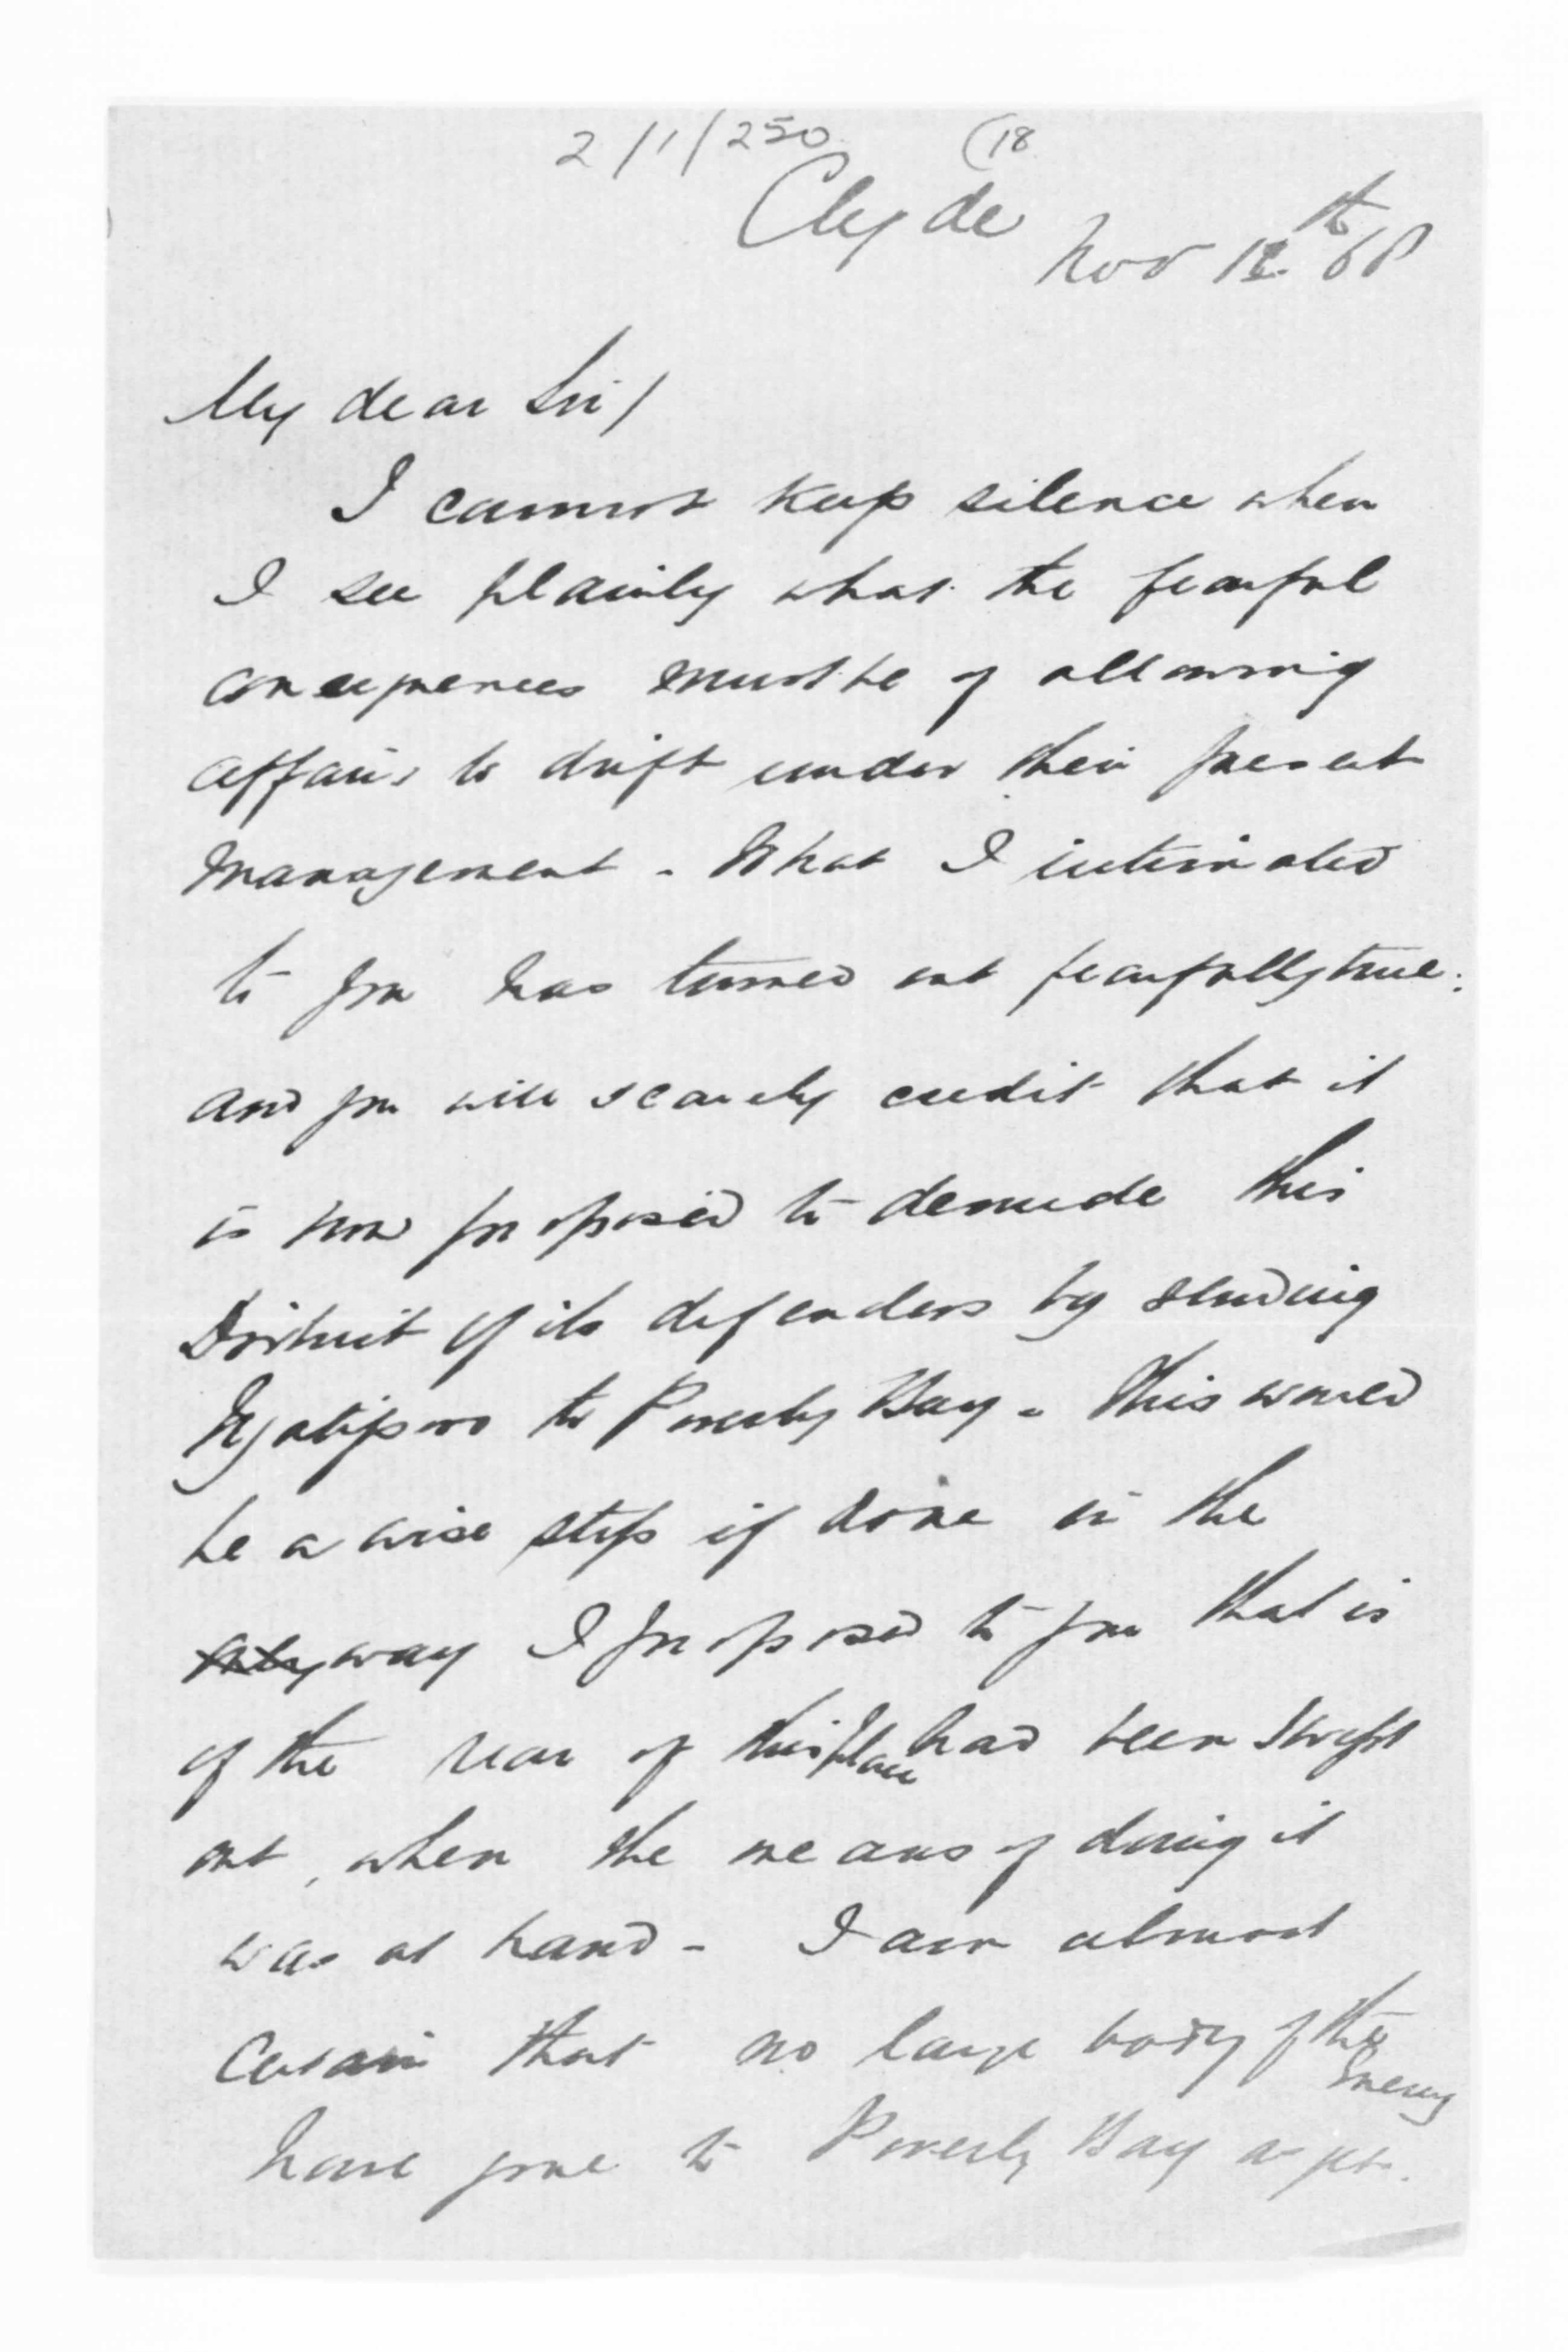 2/1/250 (18
Clyde
Nov 12th 68
My dear Sir/
I cannot keep silence when
I see plainly what the fearful
consequences must be of allowing
affairs to drift under their present
management - What I intimated
to you has turned out fearfully true.
and you will scarcely credit that it
is now proposed to denude this
District of its defenders by sending
Ngatiporo to Poverty Bay - This would
be a wise step if done in the
way I proposed to you that is
if the rear of this place had been swept
out, when the means of doing it
was at hand - I am almost
certain that no large body of the
Enemy
have gone to Poverty Bay as yet.